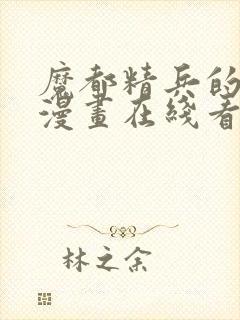 魔都精兵的
漫畫在綫看
林之余